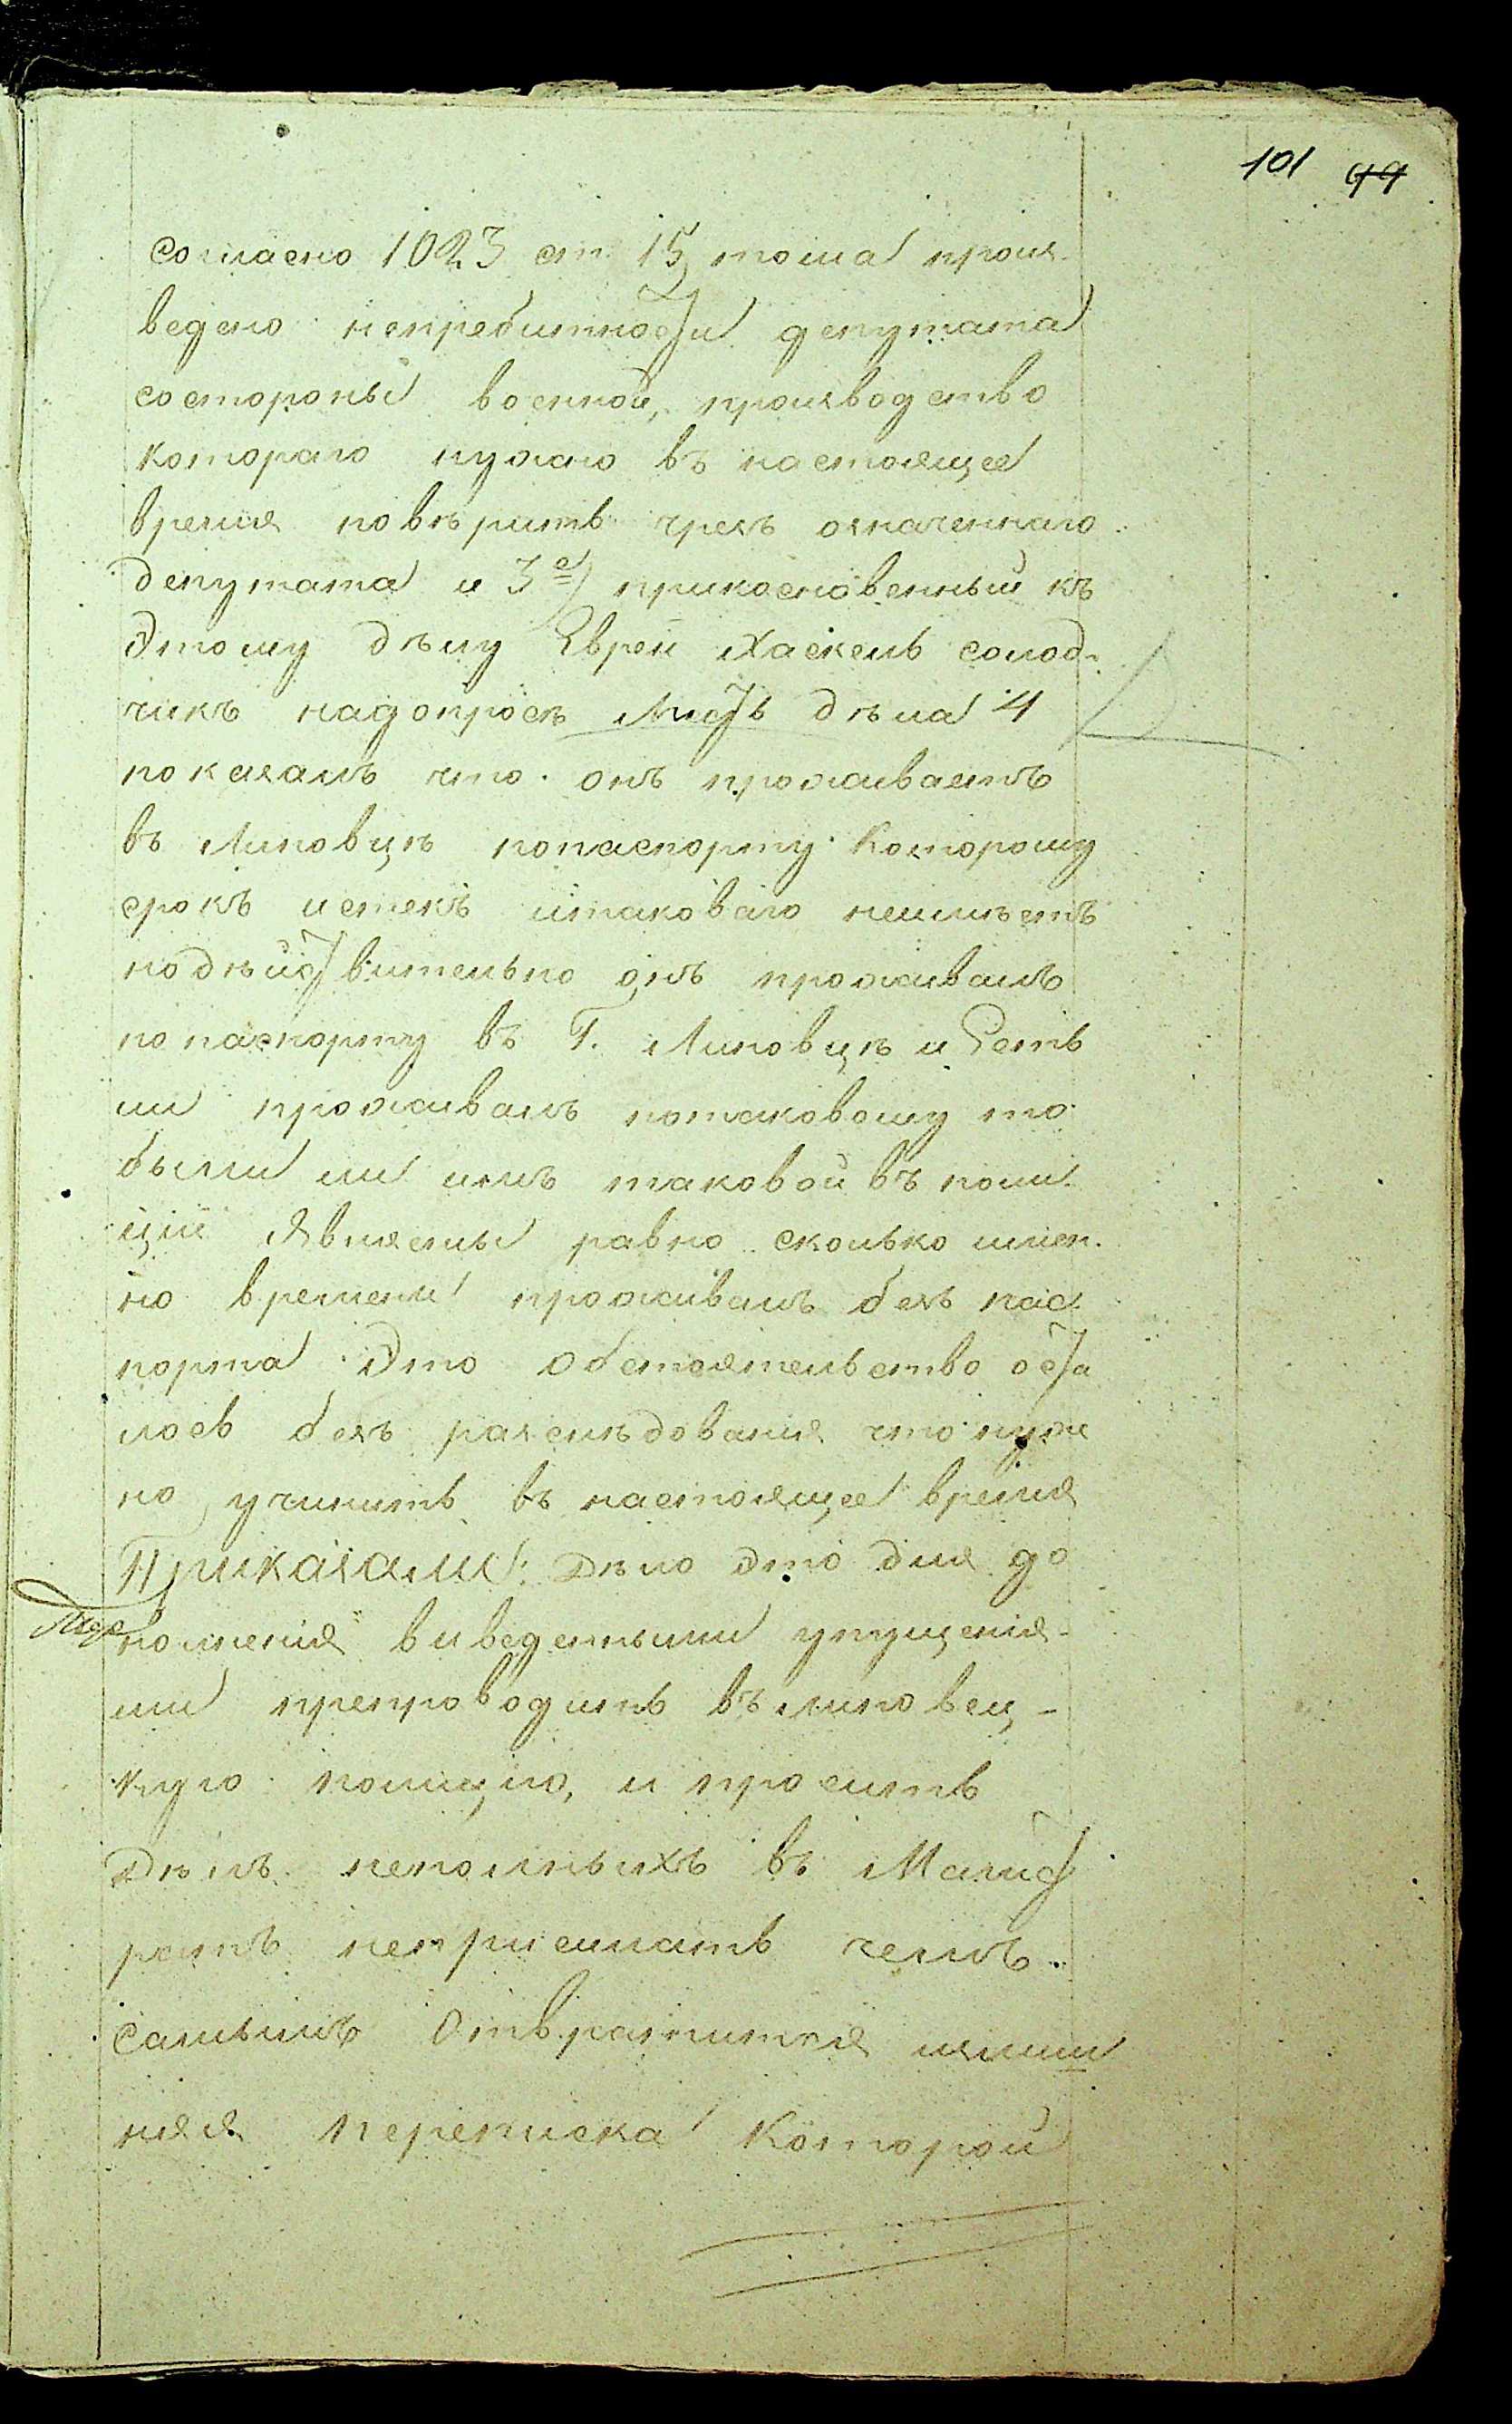 101 99
согласно 1023 ст. 15 тома произ-
ведено непребитности депутата
состороны военной, производство
котораго нужно въ настоящее
время повѣрить чрезъ означеннаго
депутата и 3е) прикосновенный къ
этому дѣлу Еврей Хаскель солод-
чикъ надопросѣ листъ дѣла 4
показалъ что онъ проживаетъ
въ Липовцѣ попаспорту которому
срокъ истекъ итаковаго неимѣетъ
нодѣйствительно онъ проживалъ
попаспорту въ Г. Липовцѣ и Есть
ли проживалъ потаковому то
были ли имъ таковой въ поли
ціи явлены равно сколько имен.
но времени проживалъ безъ пас
порта Это обстоятельство оста
лось безъ разслѣдованія что нуж
но учинить въ настоящее время
Приказали: Дѣло это для до
полненія виведенными упущенія-
ми препроводить въ липовец-
кую полицію, и просить
Дѣлъ неполныхъ въ Магист
ратъ неприсилать чемъ
самымъ Отвратится излиш
няя переписка которой